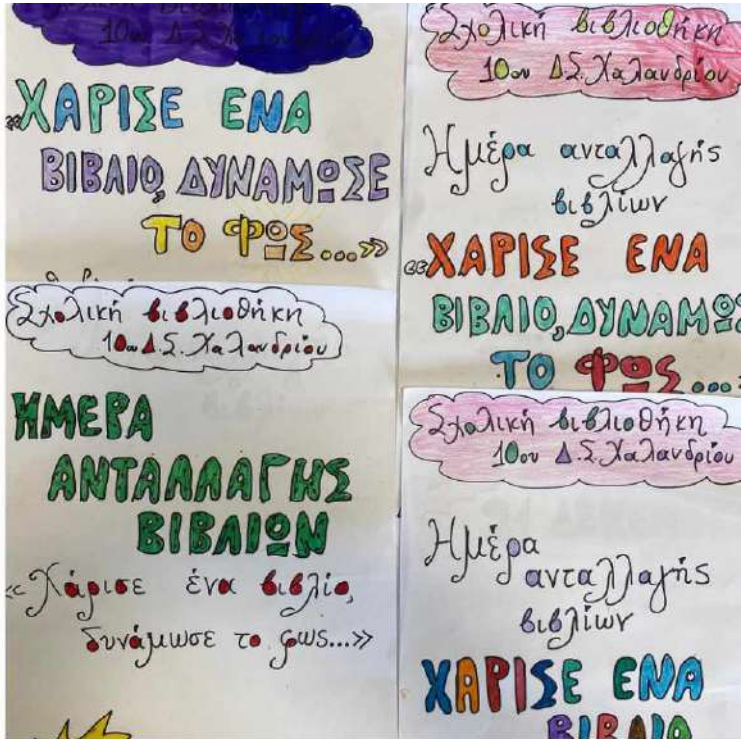 Σχολική βιβλιοθήκη
10ου Δ.Σ. Χαλανδρίου
«ΧΑΡΙΣΕ ΕΝΑ
ΒΙΒΛΙΟ, ΔΥΝΑΜΩΣΕ
ΤΟ ΦΩΣ...»
Σχολική βιβλιοθήκη
10ου Δ.Σ. Χαλανδρίου
ΗΜΕΡΑ
ΑΝΤΑΛΛΑΓΗΣ
ΒΙΒΛΙΩΝ
«Χάρισε ένα βιβλίο,
δυνάμωσε το φως...»
Σχολική βιβλιοθήκη
10ου Δ.Σ. Χαλανδρίου
Ημέρα ανταλλαγής
βιβλίων
«ΧΑΡΙΣΕ ΕΝΑ
ΒΙΒΛΙΟ, ΔΥΝΑΜΩΣ
ΤΟ ΦΩΣ...»
Σχολική βιβλιοθήκη
10ου Δ.Σ. Χαλανδρίου
Ημέρα
ανταλλαγής
βιβλίων
ΧΑΡΙΣΕ ΕΝΑ
ΒΙΒΛΙΟ